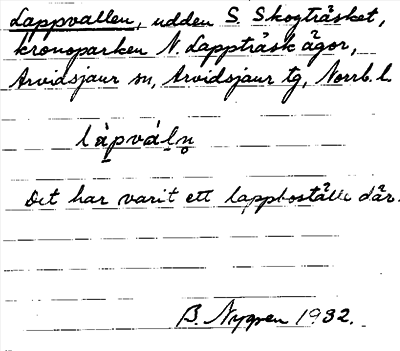 Lappvallen, udden S. Skogträsket,
kronoparken N. Lappträsk ägor,
Arvidsjaur sn, Arvidsjaur tg, Norrb. l.
làpválṇ
Det har varit ett lappboställe där.
B. Nygren 1932.